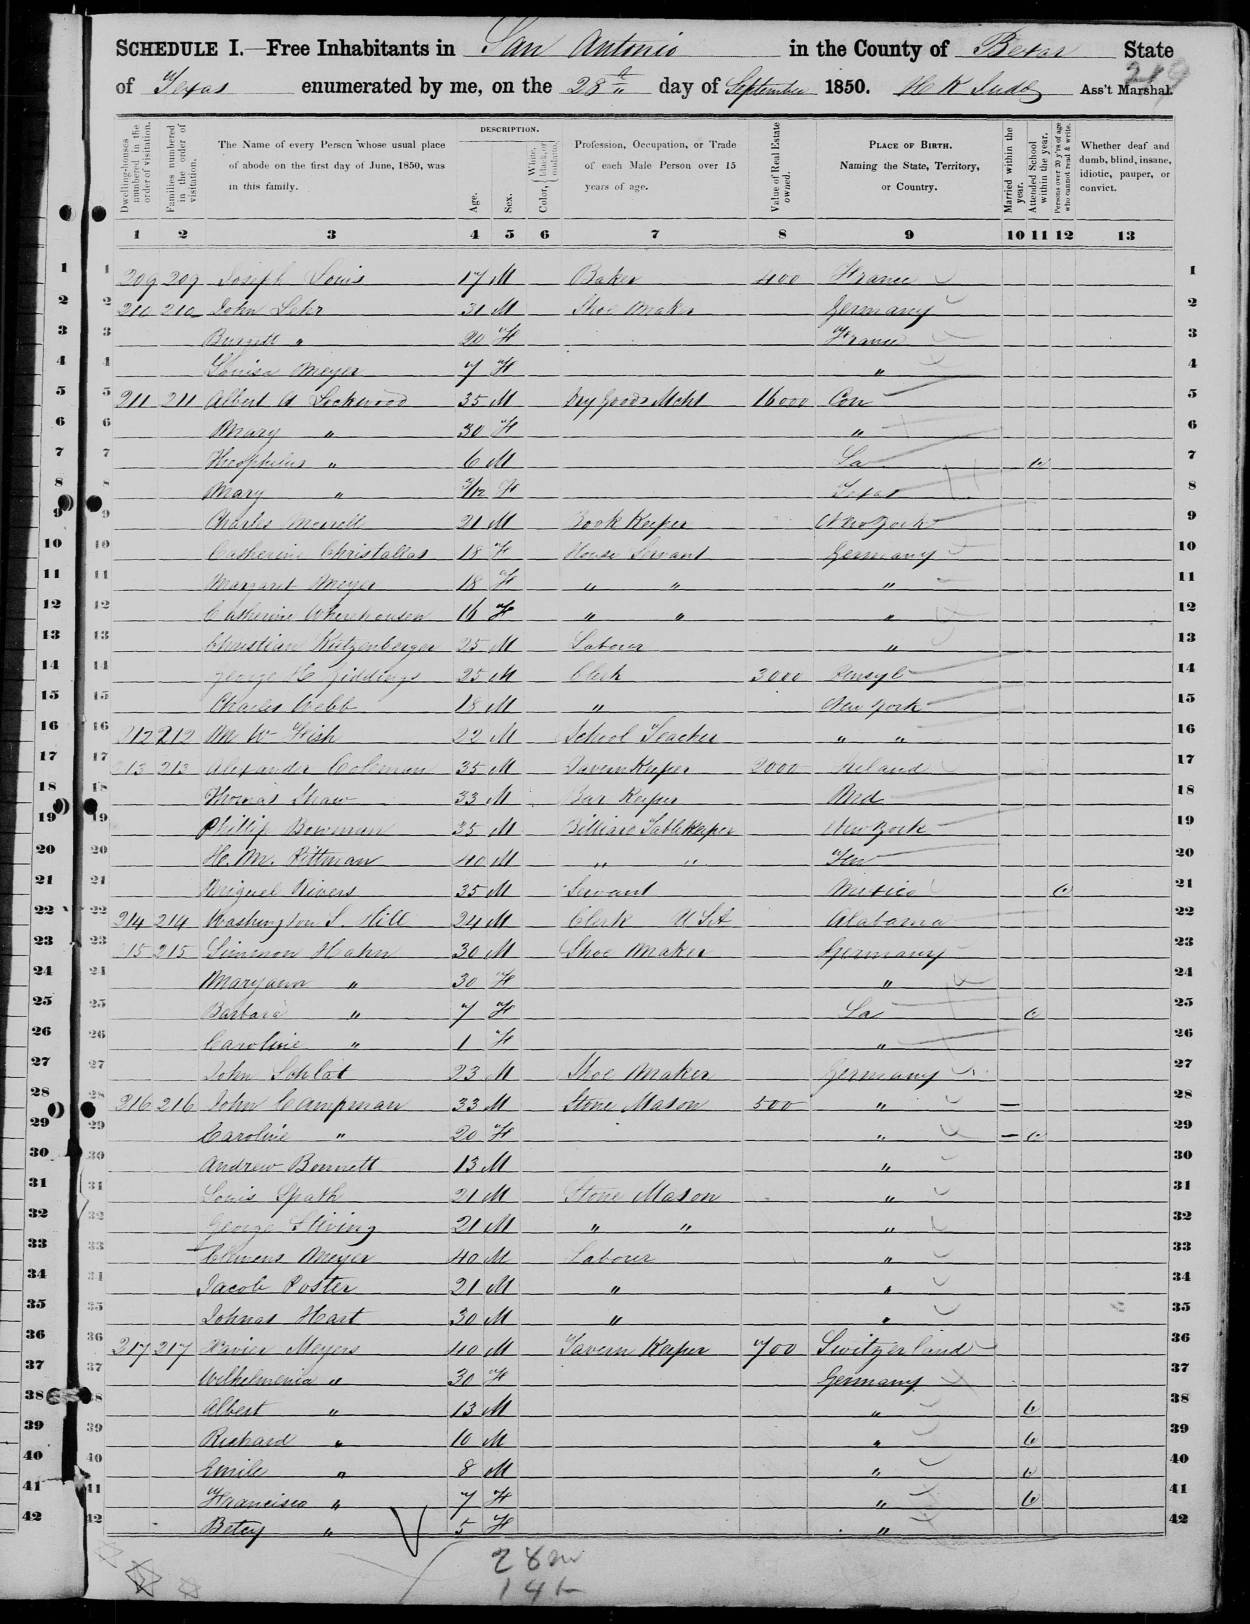 SCHEDULE I.—Free Inhabitants in San Antonio in the County of Bexar State
of Texas enumerated by me, on the 28th day of September 1850. Ass't Marshal.
219
Dwelling-houses numbered in the order of visitation.
Families numbered in the order of visitation.
The Name of every Person whose usual place of abode on the first day of June, 1850, was in this family.
DESCRIPTION.
Age.
Sex.
Color, White, black, or mulatto.
Profession, Occupation, or Trade of each Male Person over 15 years of age.
Value of Real Estate owned.
PLACE OF BIRTH. Naming the State, Territory, or Country.
Married within the year.
Attended School within the year.
Persons over 20 y'rs of age who cannot read & write.
Whether deaf and dumb, blind, insane, idiotic, pauper, or convict.
1 2 3 4 5 6 7 8 9 10 11 12 13
1 209 209 Joseph Louis 17 M Baker 400 France 1
2 210 210 John Lehr 31 M Shoe Maker Germany 2
3 " 20 F France 3
4 Louisa Meyer 7 F " 4
5 211 211 Albert A Lockwood 35 M Dry Goods Mcht 16000 Con 5
6 Mary " 30 F " 6
7 Theophilus " 6 M La 7
8 Mary " 3/12 F Texas 8
9 Charles Merrell 21 M Book Keeper New York 9
10 Catherine Christallas 18 F House Servant Germany 10
11 Margaret Meyer 18 F " " " 11
12 Catherine 16 F " " " 12
13 Christian Kutzenberger 25 M Laborer " 13
14 George H Giddings 25 M Clerk 3000 Pensyl 14
15 Charles Webb 18 M " New York 15
16 212 212 M W Fish 22 M School Teacher " " 16
17 213 213 Alexander Coleman 35 M Tavern Keeper 2000 Ireland 17
18 Thomas Shaw 33 M Bar Keeper Md 18
19 Phillip Bowman 35 M Billiard Table Keeper New York 19
20 H. M. Pittman 40 M " " 20
21 Miguel Rivers 35 M Servant Mexico 21
22 214 214 Washington S. Hill 24 M Clerk U S A Alabama 22
23 215 215 Simmon Hahn 30 M Shoe Maker Germany 23
24 Maryann " 30 F " 24
25 Barbara " 7 F La 25
26 Caroline " 1 F " 26
27 John Schlat 23 M Shoe Maker Germany 27
28 216 216 John Campman 33 M Stone Mason 500 " — 28
29 Caroline " 20 F " — 29
30 Andrew Bennett 13 M " 30
31 Louis Spath 21 M Stone Mason " 31
32 George Stiving 21 M " " " 32
33 Clemens Meyer 40 M Laborer " 33
34 Jacob Poster 21 M " " 34
35 Johnas Hart 30 M " " 35
36 217 217 Xavier Meyers 40 M Tavern Keeper 700 Switzerland 36
37 Wilhelmenia " 30 F Germany 37
38 Albert " 13 M " 38
39 Richard " 10 M " 39
40 Emile " 8 M " 40
41 Francisco " 7 F " 41
42 Betsy " 5 F " 42
28 m
14 f